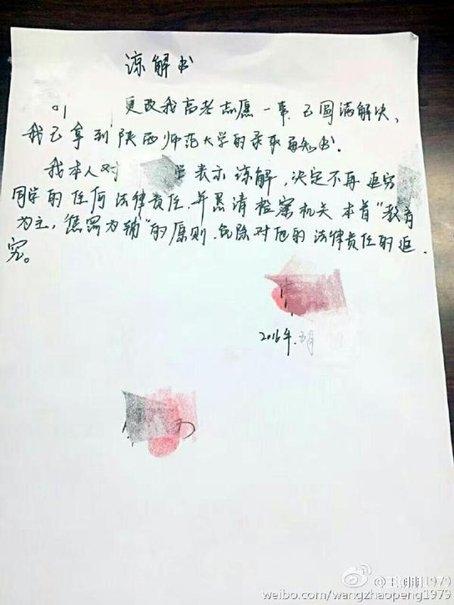 谅解书
更改我高考志愿一事,已圆满解决,
我已拿到陕西师范大学的录取通知书.
我本人对 表示谅解,决定不再追究
同学的任何法律责任.并恳请检察机关本着“教育
为主,惩罚为辅”的原则,免除对他的法律责任的追
究。
2016年.
weibo.com/wangzhaopeng1979